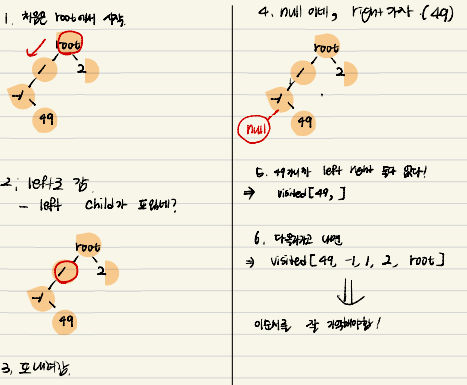 1. 처음은 root에서 시작.
root
/
2
-1
49
2. left로 감
- left child가 또있네?
root
/
2
-1
49
3. 또 내려감.
4. null 이네, right 가자. (49)
root
/
2
-1
49
null
5. 49에서 left right 둘다 없다!
⇒ visited [49, ]
6. 다올라가고 나면
⇒ visited [49, -1, 1, 2, root]
이순서를 잘 기억해야함!